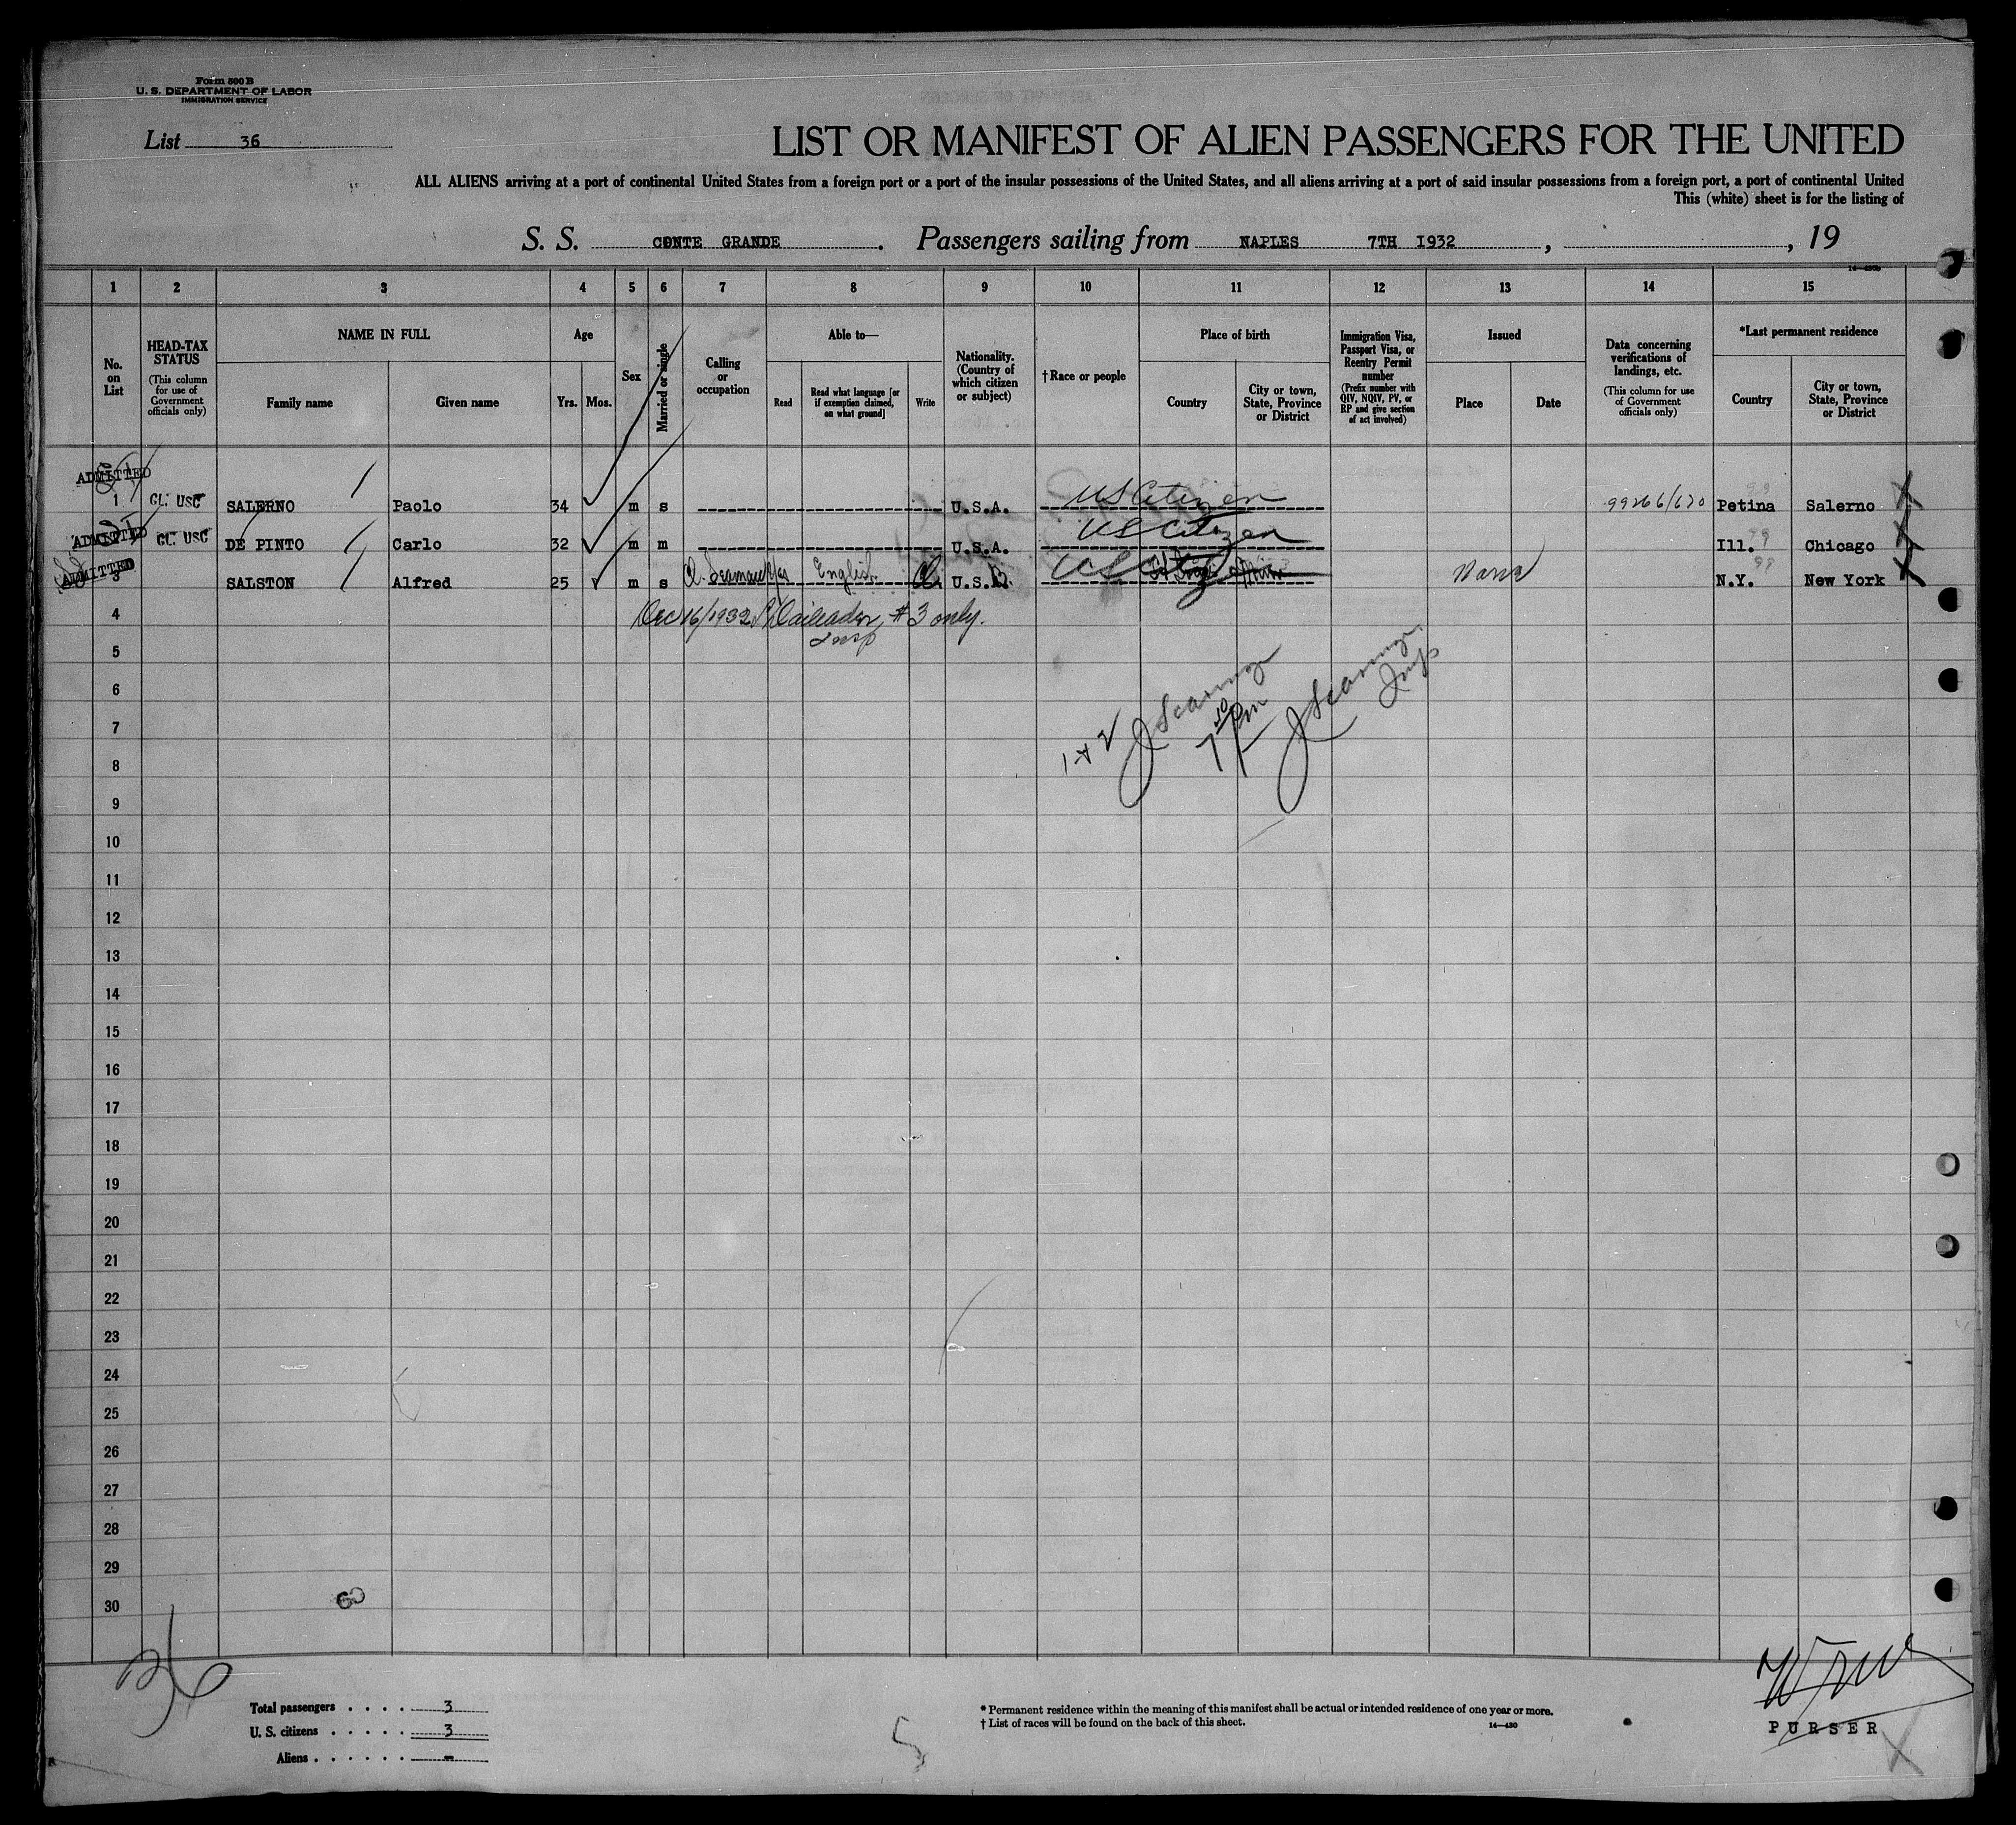 Form 500 B
U. S. DEPARTMENT OF LABOR
IMMIGRATION SERVICE
List 36
LIST OR MANIFEST OF ALIEN PASSENGERS FOR THE UNITED
ALL ALIENS arriving at a port of continental United States from a foreign port or a port of the insular possessions of the United States, and all aliens arriving at a port of said insular possessions from a foreign port, a port of continental United
This (white) sheet is for the listing of
S. S. CONTE GRANDE. Passengers sailing from NAPLES 7TH 1932, , 19
1 2 3 4 5 6 7 8 9 10 11 12 13 14 15
No. on List
HEAD-TAX STATUS
(This column for use of Government officials only)
NAME IN FULL
Family name
Given name
Age
Yrs.
Mos.
Sex
Married or single
Calling or occupation
Able to—
Read
Read what language [or if exemption claimed, on what ground]
Write
Nationality. (Country of which citizen or subject)
† Race or people
Place of birth
Country
City or town, State, Province or District
Immigration Visa, Passport Visa, or Reentry Permit number
(Prefix number with QIV, NQIV, PV, or RP and give section of act involved)
Issued
Place
Date
Data concerning verifications of landings, etc.
(This column for use of Government officials only)
*Last permanent residence
Country
City or town, State, Province or District
ADMITTED
1 CL. USC SALERNO Paolo 34 m s U.S.A. US Citizen 99266/670 Petina Salerno
ADMITTED
CL. USC DE PINTO Carlo 32 m m U.S.A. US Citizen Ill. Chicago
ADMITTED
3 SALSTON Alfred 25 m s Seaman Yes English U.S. US Citizen N.Y. New York
4 Dec 16/1932 #3 only.
Insp
5
6
7
1 & 2 J Scarings 7 30 PM J Scarings Insp
8
9
10
11
12
13
14
15
16
17
18
19
20
21
22
23
24
25
26
27
28
29
30
60
36
Total passengers . . . . 3
U. S. citizens . . . . . 3
Aliens . . . . . . -
5
* Permanent residence within the meaning of this manifest shall be actual or intended residence of one year or more.
† List of races will be found on the back of this sheet. 14—430
PURSER